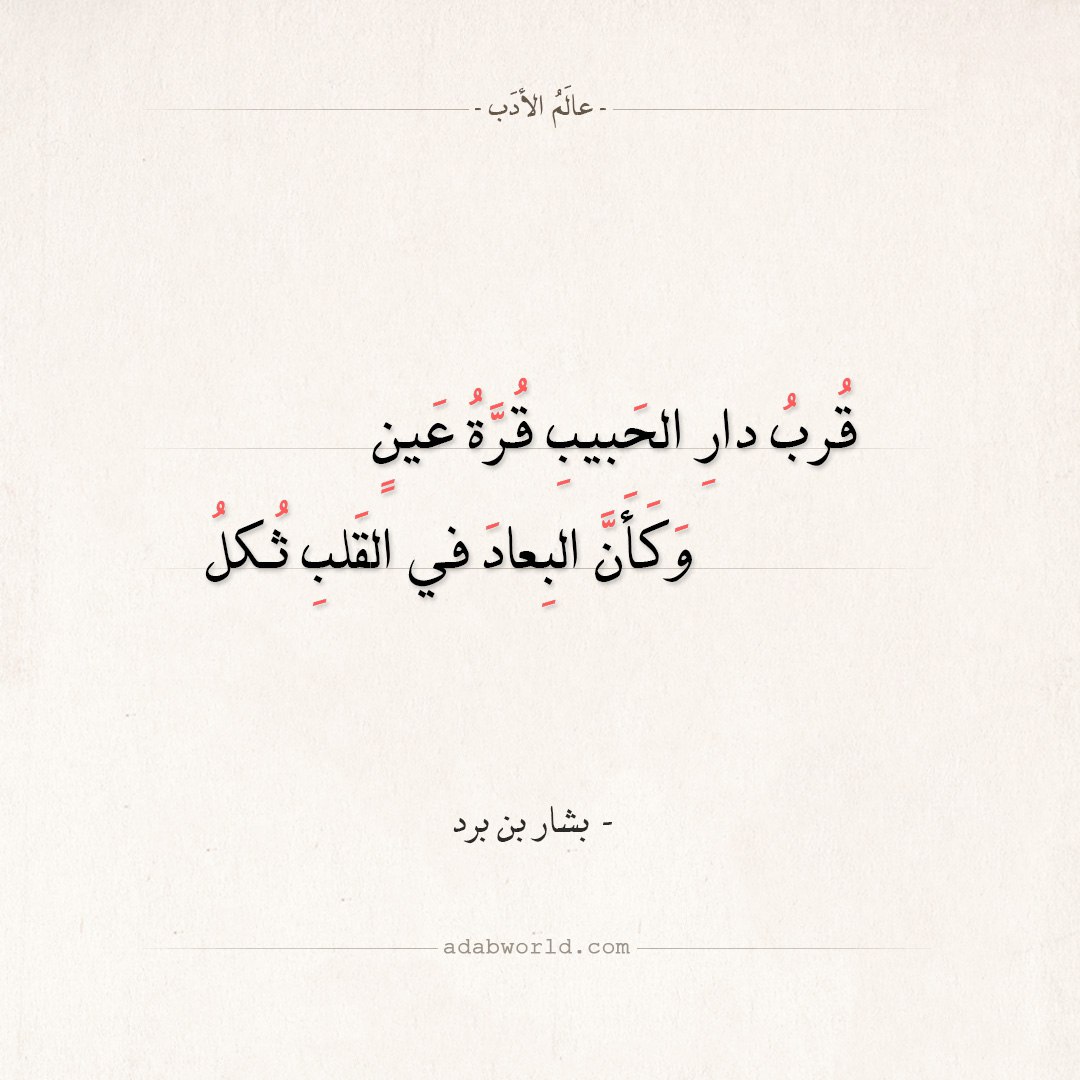 - عالَمُ الأدَب -
قُربُ دارِ الحَبيبِ قُرَّةُ عَينٍ
وَكَأَنَّ البِعادَ في القَلبِ ثُكلُ
- بشار بن برد
adabworld.com